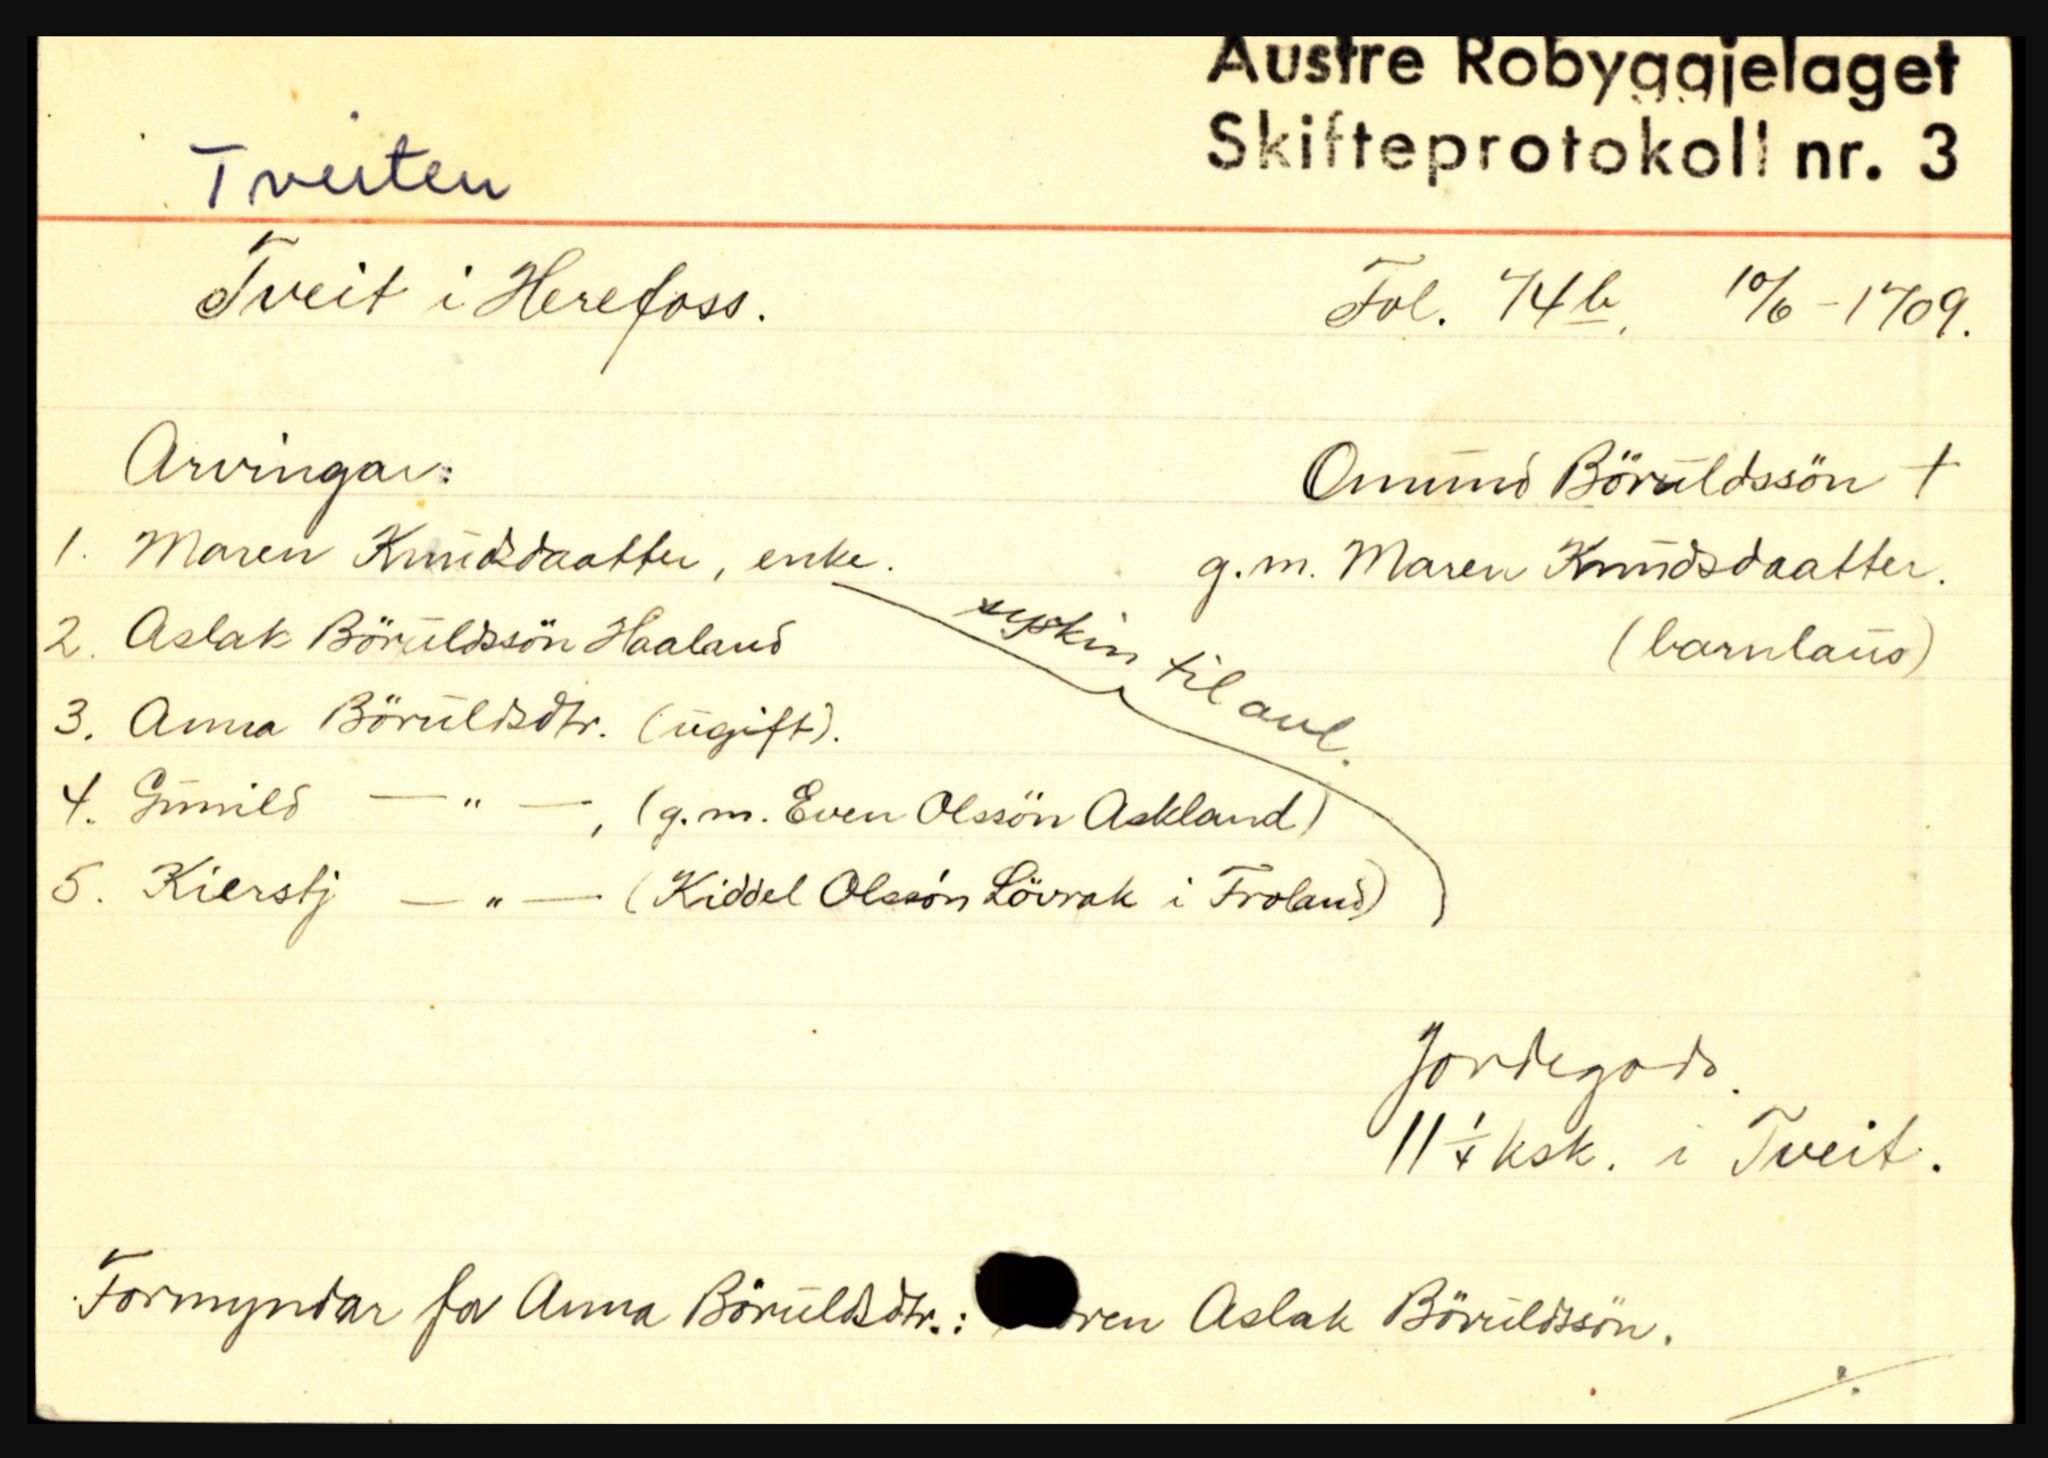 Austre Robyggjelaget
Skifteprotokoll nr. 3
Tveiten
Tveit i Herefoss.
Fol. 74b. 10/6-1709.
Arvingar:
Omund Böruldssön †
1. Maren Knudsdaatter, enke.
g.m. Maren Knudsdaatter.
2. Aslak Böruldssön Haaland
(barnlaus)
syskin til avl.
3. Anna Böruldsdtr. (ugift).
4. Gunild —"—, (g.m. Even Olssön Askland)
5. Kierstj —"— (Kiddel Olssön Lövrak i Froland)
Jordegods.
11 1/4 ksk. i Tveit.
Formyndar for Anna Böruldsdtr.: ren Aslak Böruldssön.
./.